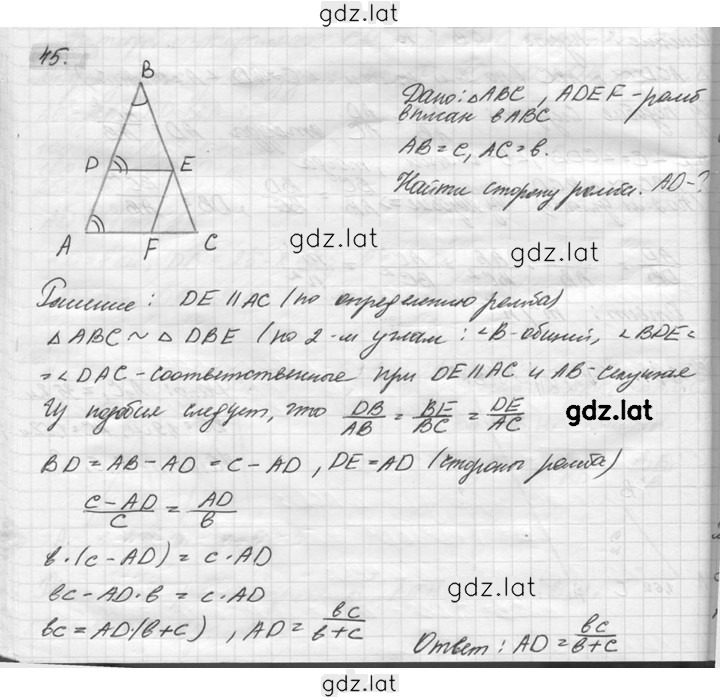 gdz.lat
45.
B
D
E
A
F
C
Дано: △ABC, ADEF-ромб
вписан в ABC
AB = c, AC = в.
Найти сторону ромба. AD-?
gdz.lat
gdz.lat
Решение: DE || AC (по определению ромба)
△ABC ~ △DBE (по 2-м углам: ∠B-общий, ∠BDE=
=∠DAC-соответственные при DE||AC и AB-секущая
Из подобия следует, что DB/AB = BE/BC = DE/AC
gdz.lat
BD = AB - AD = c - AD, DE = AD (стороны ромба)
(c - AD)/c = AD/в
в·(c - AD) = c·AD
gdz.lat
вc - AD·в = c·AD
вc = AD(в+c), AD = вc/(в+c)
Ответ: AD = вc/(в+c)
gdz.lat